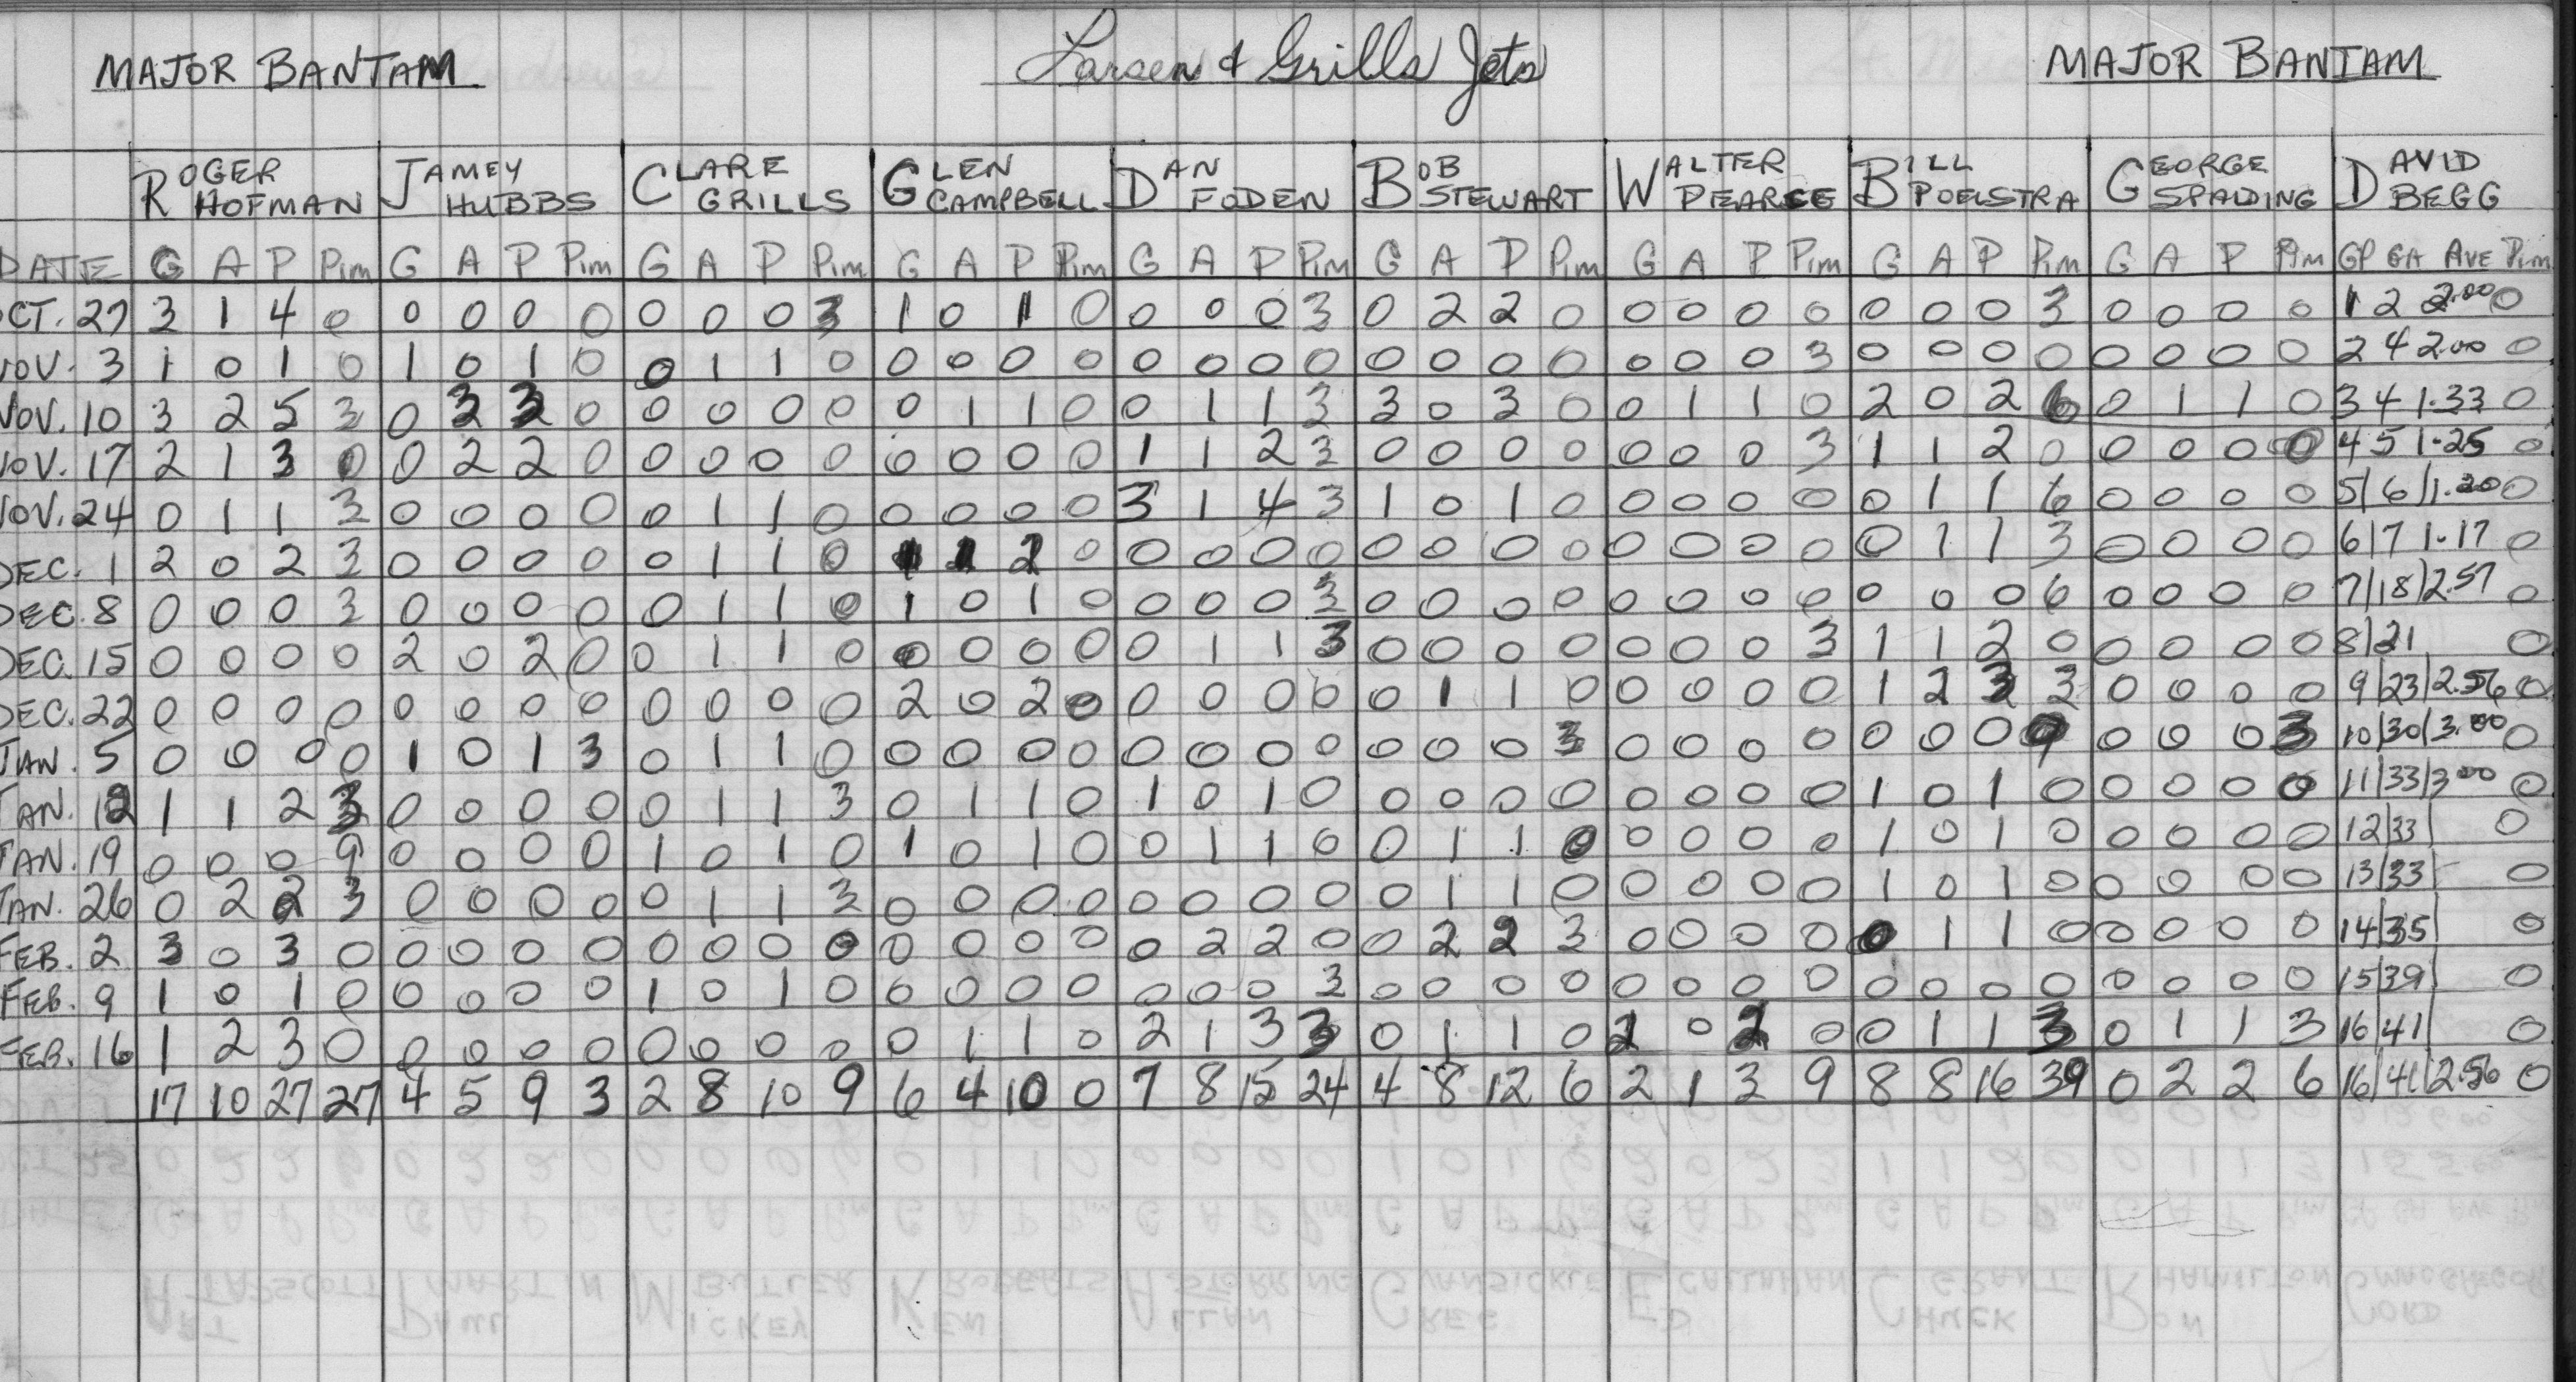 MAJOR BANTAM Larsen & Grills Jets MAJOR BANTAM
ROGER HOFMAN JAMEY HUBBS CLARE GRILLS GLEN CAMPBELL DAN FODEN BOB STEWART WALTER PEARCE BILL POELSTRA GEORGE SPALDING DAVID BEGG
DATE G A P Pim G A P Pim G A P Pim G A P Pim G A P Pim G A P Pim G A P Pim G A P Pim G A P Pim GP GA AVE Pim
OCT. 27 3 1 4 0 0 0 0 0 0 0 0 3 1 0 1 0 0 0 0 3 0 2 2 0 0 0 0 0 0 0 0 3 0 0 0 0 1 2 2.00 0
NOV. 3 1 0 1 0 1 0 1 0 0 1 1 0 0 0 0 0 0 0 0 0 0 0 0 0 0 0 0 3 0 0 0 0 0 0 0 0 2 4 2.00 0
NOV. 10 3 2 5 3 0 3 3 0 0 0 0 0 0 1 1 0 0 1 1 3 3 0 3 0 0 1 1 0 2 0 2 6 0 1 1 0 3 4 1.33 0
NOV. 17 2 1 3 0 0 2 2 0 0 0 0 0 0 0 0 0 1 1 2 3 0 0 0 0 0 0 0 3 1 1 2 0 0 0 0 0 4 5 1.25 0
NOV. 24 0 1 1 3 0 0 0 0 0 1 1 0 0 0 0 0 3 1 4 3 1 0 1 0 0 0 0 0 0 1 1 6 0 0 0 0 5/6/1.20 0
DEC. 1 2 0 2 3 0 0 0 0 0 1 1 0 1 1 2 0 0 0 0 0 0 0 0 0 0 0 0 0 0 1 1 3 0 0 0 0 6/7 1.17 0
DEC. 8 0 0 0 3 0 0 0 0 0 1 1 0 1 0 1 0 0 0 0 3 0 0 0 0 0 0 0 0 0 0 0 6 0 0 0 0 7/18/2.57 0
DEC. 15 0 0 0 0 2 0 2 0 0 1 1 0 0 0 0 0 0 1 1 3 0 0 0 0 0 0 0 3 1 1 2 0 0 0 0 0 8/21 0
DEC. 22 0 0 0 0 0 0 0 0 0 0 0 0 2 0 2 0 0 0 0 0 0 1 1 0 0 0 0 0 1 2 3 3 0 0 0 0 9/23/2.56 0
JAN. 5 0 0 0 0 1 0 1 3 0 1 1 0 0 0 0 0 0 0 0 0 0 0 0 3 0 0 0 0 0 0 0 9 0 0 0 3 10/30/3.00 0
JAN. 12 1 1 2 3 0 0 0 0 0 1 1 3 0 1 1 0 1 0 1 0 0 0 0 0 0 0 0 0 1 0 1 0 0 0 0 0 11/33/3.00 0
JAN. 19 0 0 0 9 0 0 0 0 1 0 1 0 1 0 1 0 0 1 1 0 0 1 1 0 0 0 0 0 1 0 1 0 0 0 0 0 12/33/ 0
JAN. 26 0 2 2 3 0 0 0 0 0 1 1 3 0 0 0 0 0 0 0 0 0 1 1 0 0 0 0 0 1 0 1 0 0 0 0 0 13/33/ 0
FEB. 2 3 0 3 0 0 0 0 0 0 0 0 0 0 0 0 0 0 2 2 0 0 2 2 3 0 0 0 0 0 1 1 0 0 0 0 0 14/35/ 0
FEB. 9 1 0 1 0 0 0 0 0 1 0 1 0 0 0 0 0 0 0 0 3 0 0 0 0 0 0 0 0 0 0 0 0 0 0 0 0 15/39/ 0
FEB. 16 1 2 3 0 0 0 0 0 0 0 0 0 0 1 1 0 2 1 3 3 0 1 1 0 2 0 2 0 0 1 1 3 0 1 1 3 16/41/ 0
17 10 27 27 4 5 9 3 2 8 10 9 6 4 10 0 7 8 15 24 4 8 12 6 2 1 3 9 8 8 16 39 0 2 2 6 16/41/2.56 0